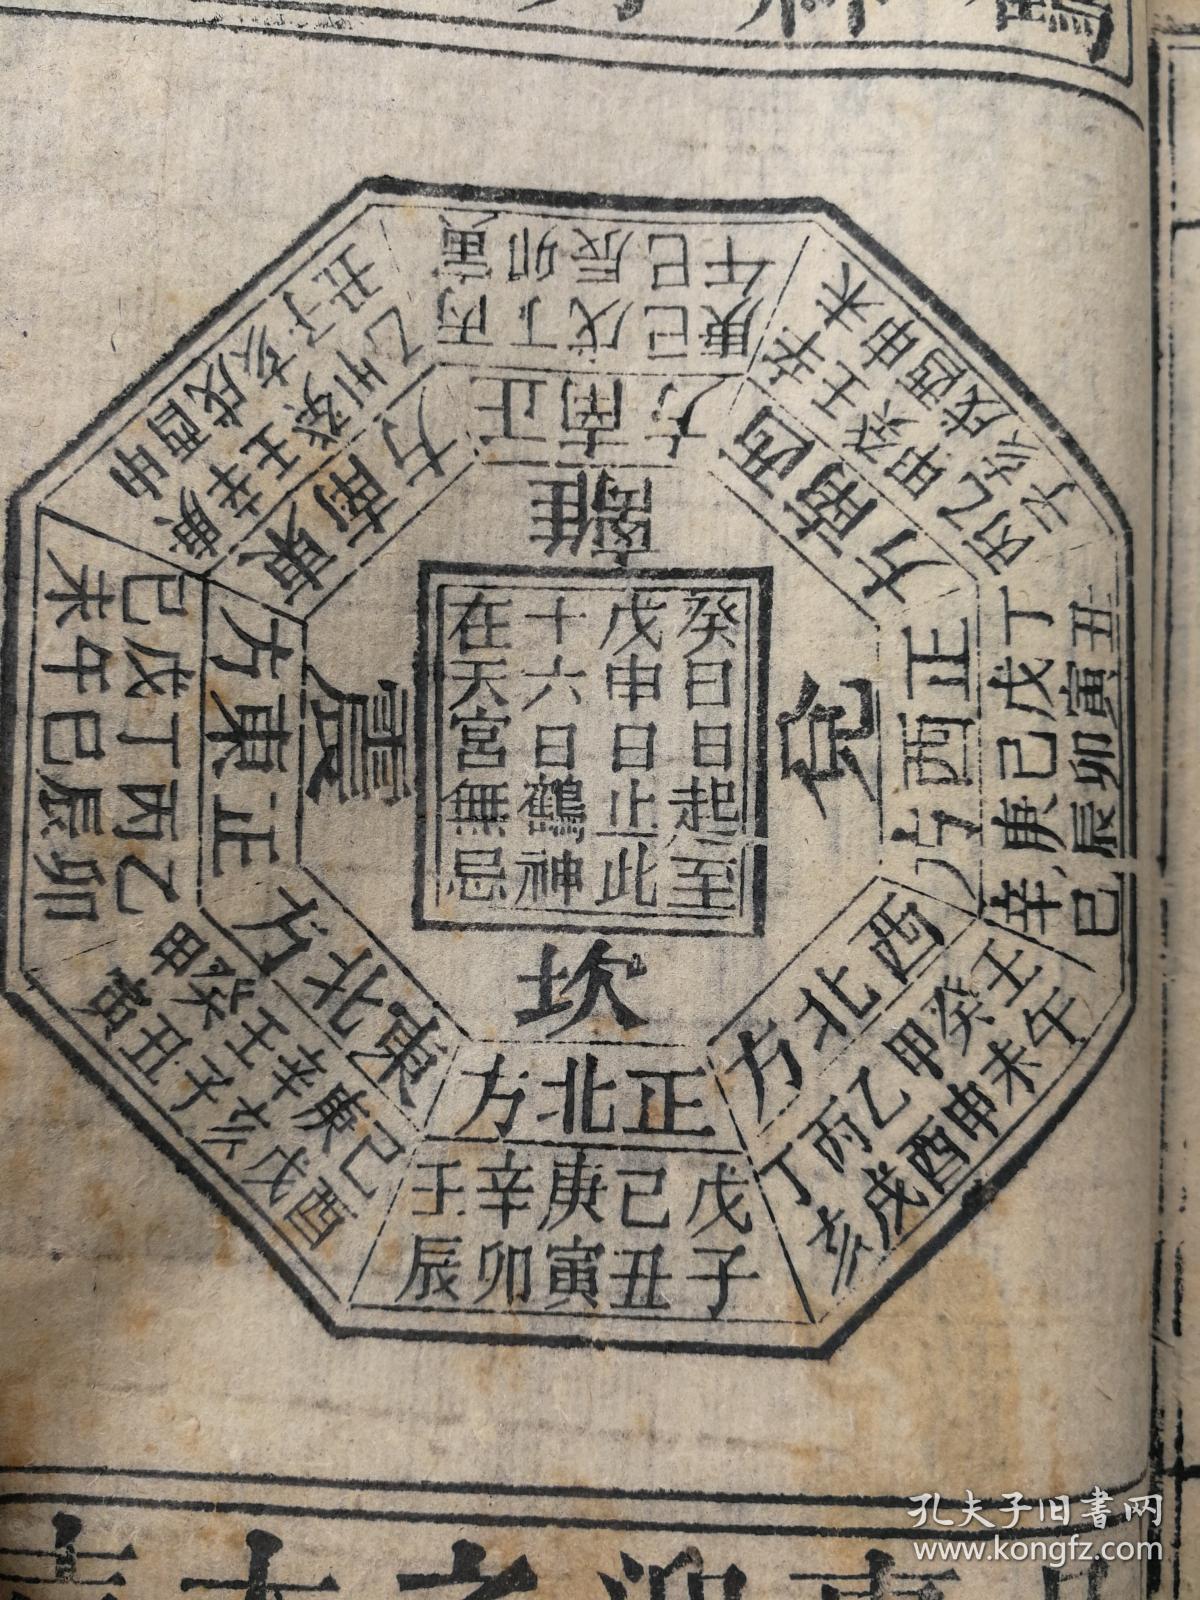 癸日日起至
戊申日止此
十六日鶴神
在天宮無忌
離
正南方
丙丁戊己庚
寅卯辰巳午
西南方
辛壬癸甲乙丙
未申酉戌亥子
兌
正西方
丁戊己庚辛
丑寅卯辰巳
西北方
壬癸甲乙丙丁
午未申酉戌亥
坎
正北方
戊己庚辛壬
子丑寅卯辰
東北方
己庚辛壬癸甲
酉戌亥子丑寅
震
正東方
乙丙丁戊己
卯辰巳午未
東南方
庚辛壬癸甲乙
申酉戌亥子丑
孔夫子旧書网
www.kongfz.com